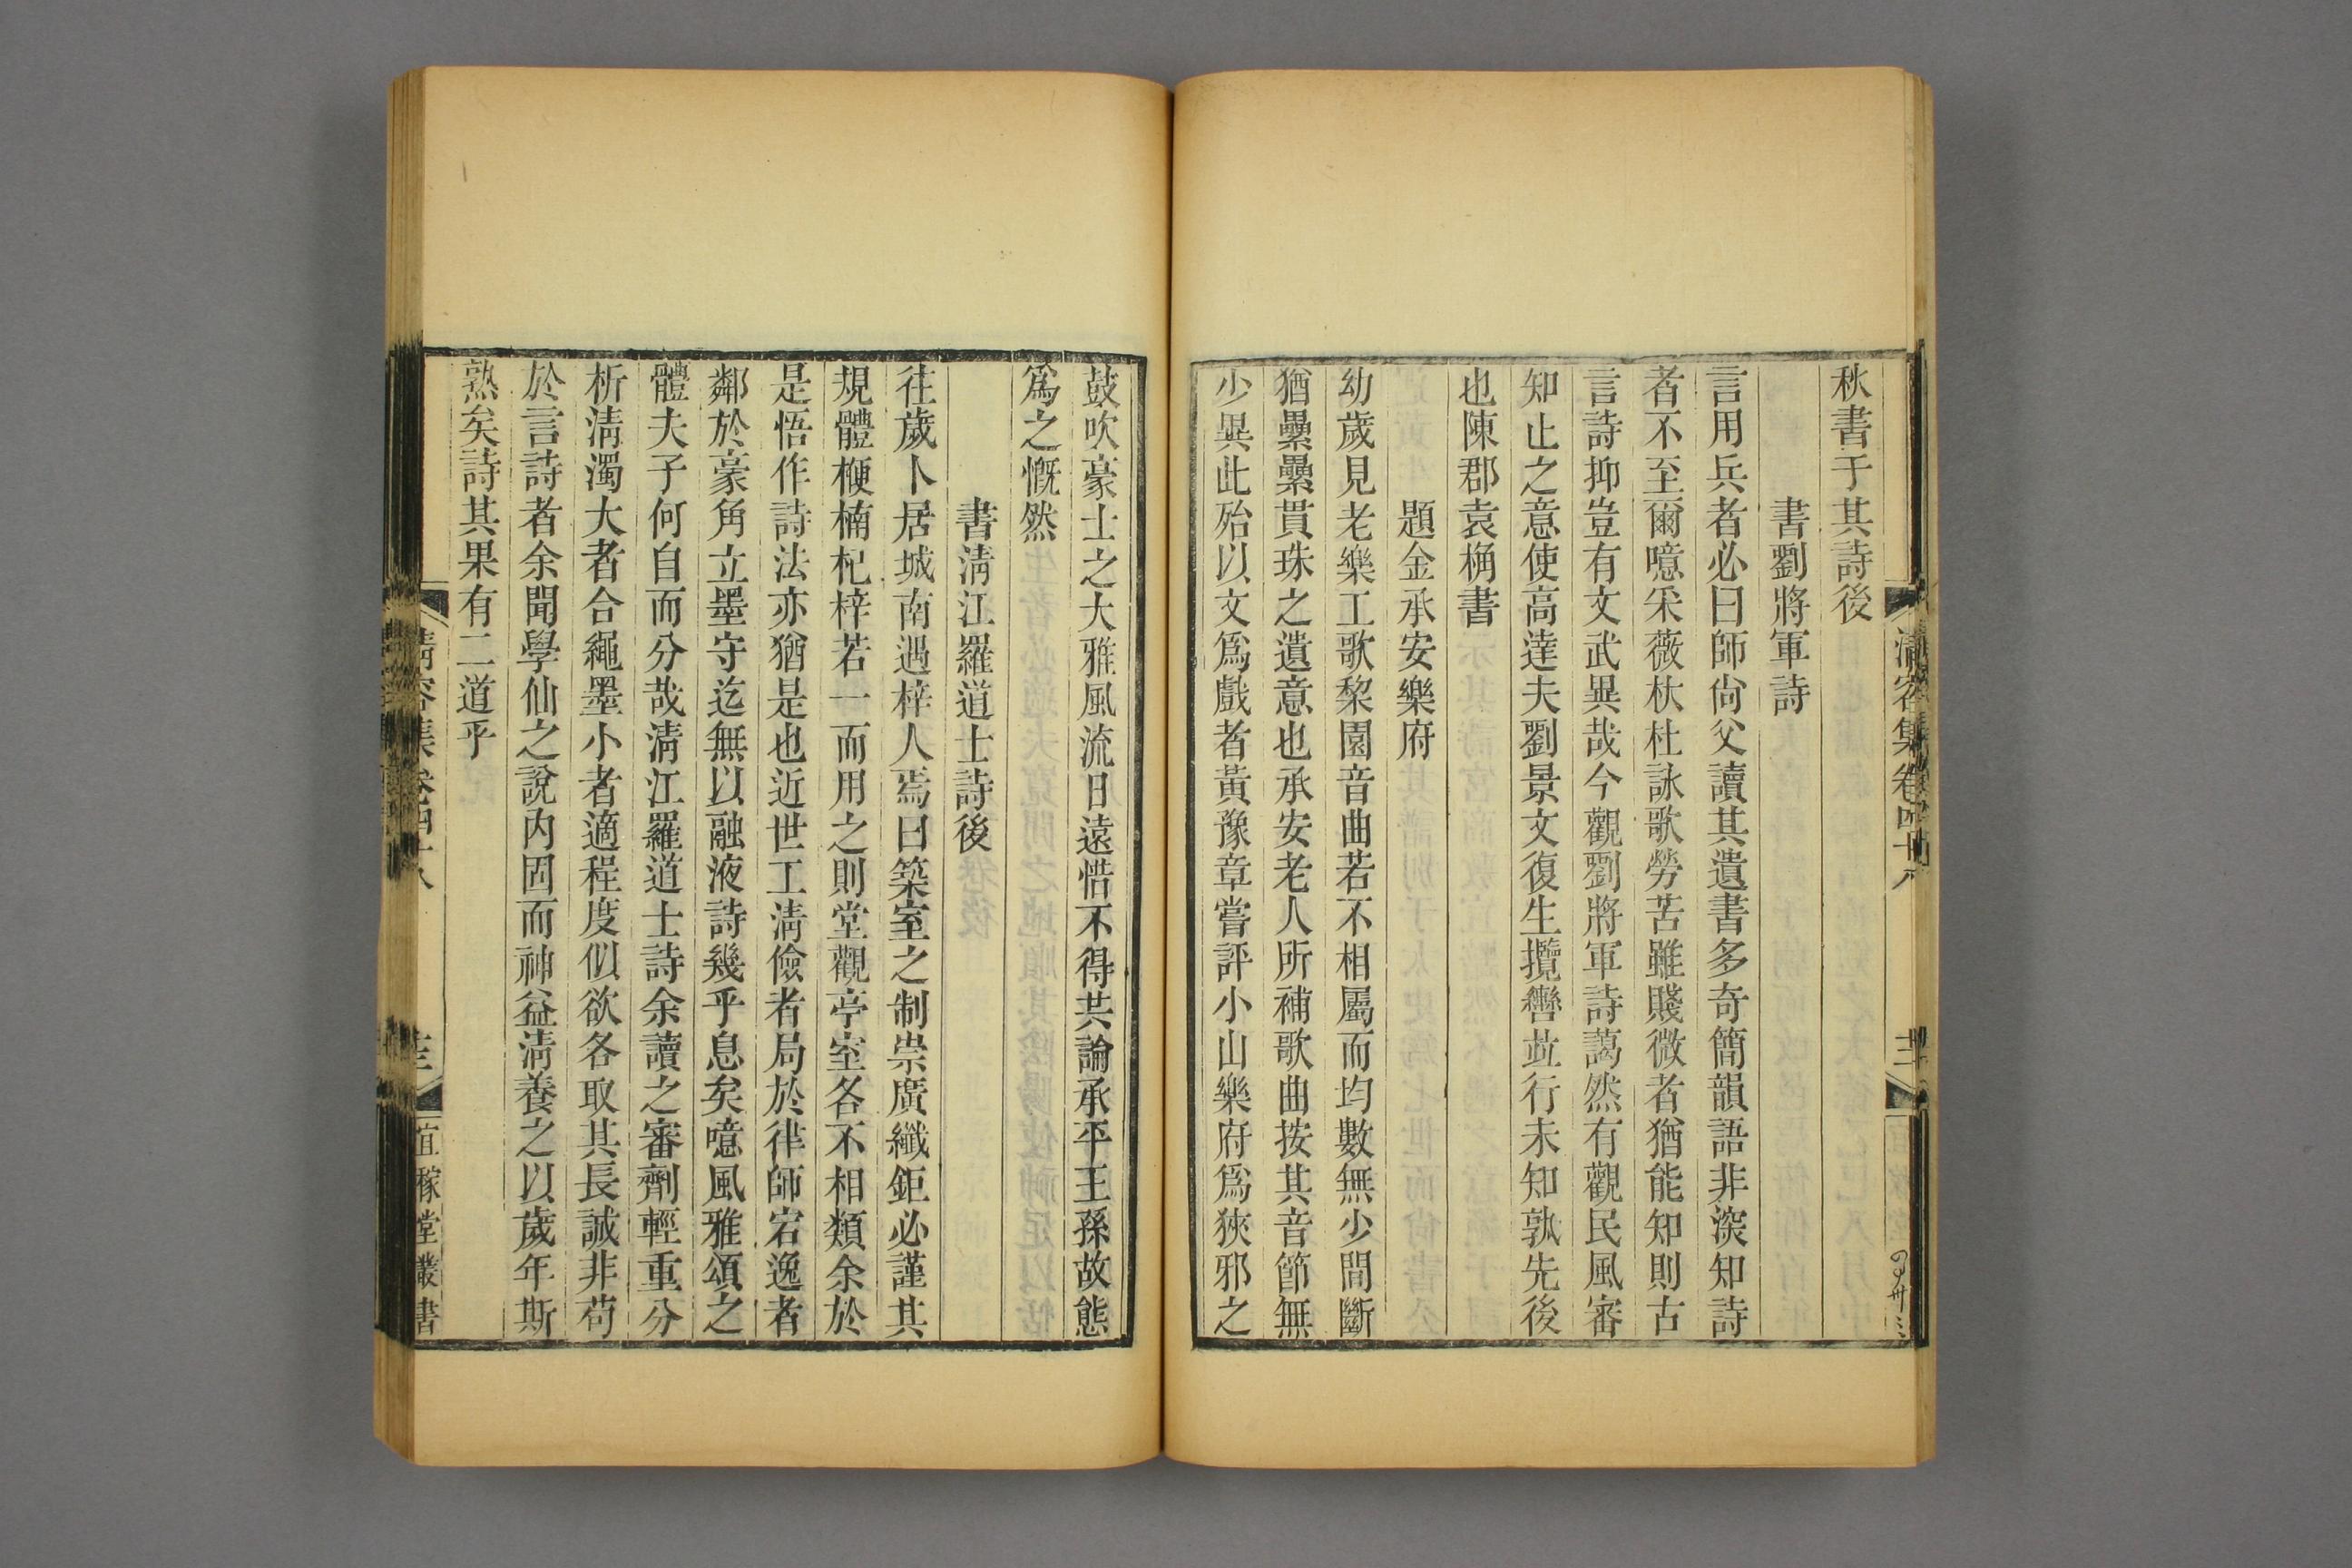 秋書于其詩後
書劉將軍詩
言用兵者必曰師尙父讀其遺書多奇簡韻語非深知詩
者不至爾噫采薇杕杜詠歌勞苦雖賤微者猶能知則古
言詩抑豈有文武異哉今觀劉將軍詩藹然有觀民風審
知止之意使高達夫劉景文復生攬轡並行未知孰先後
也陳郡袁桷書
題金承安樂府
幼歲見老樂工歌棃園音曲若不相屬而均數無少間斷
猶纍纍貫珠之遺意也承安老人所補歌曲按其音節無
少異此殆以文爲戲者黃豫章嘗評小山樂府爲狹邪之
清容集卷四十八
鼓吹豪士之大雅風流日遠惜不得共論承平王孫故態
爲之慨然
書淸江羅道士詩後
往歲卜居城南遇梓人焉曰築室之制崇廣纖鉅必謹其
規體楩楠杞梓若一而用之則堂觀亭室各不相類余於
是悟作詩法亦猶是也近世工淸儉者局於律師宕逸者
鄰於豪角立墨守迄無以融液詩幾乎息矣噫風雅頌之
體夫子何自而分哉淸江羅道士詩余讀之審劑輕重分
析淸濁大者合繩墨小者適程度似欲各取其長誠非苟
於言詩者余聞學仙之說內固而神益淸養之以歲年斯
熟矣詩其果有二道乎
清容集卷四十八
宜稼堂叢書